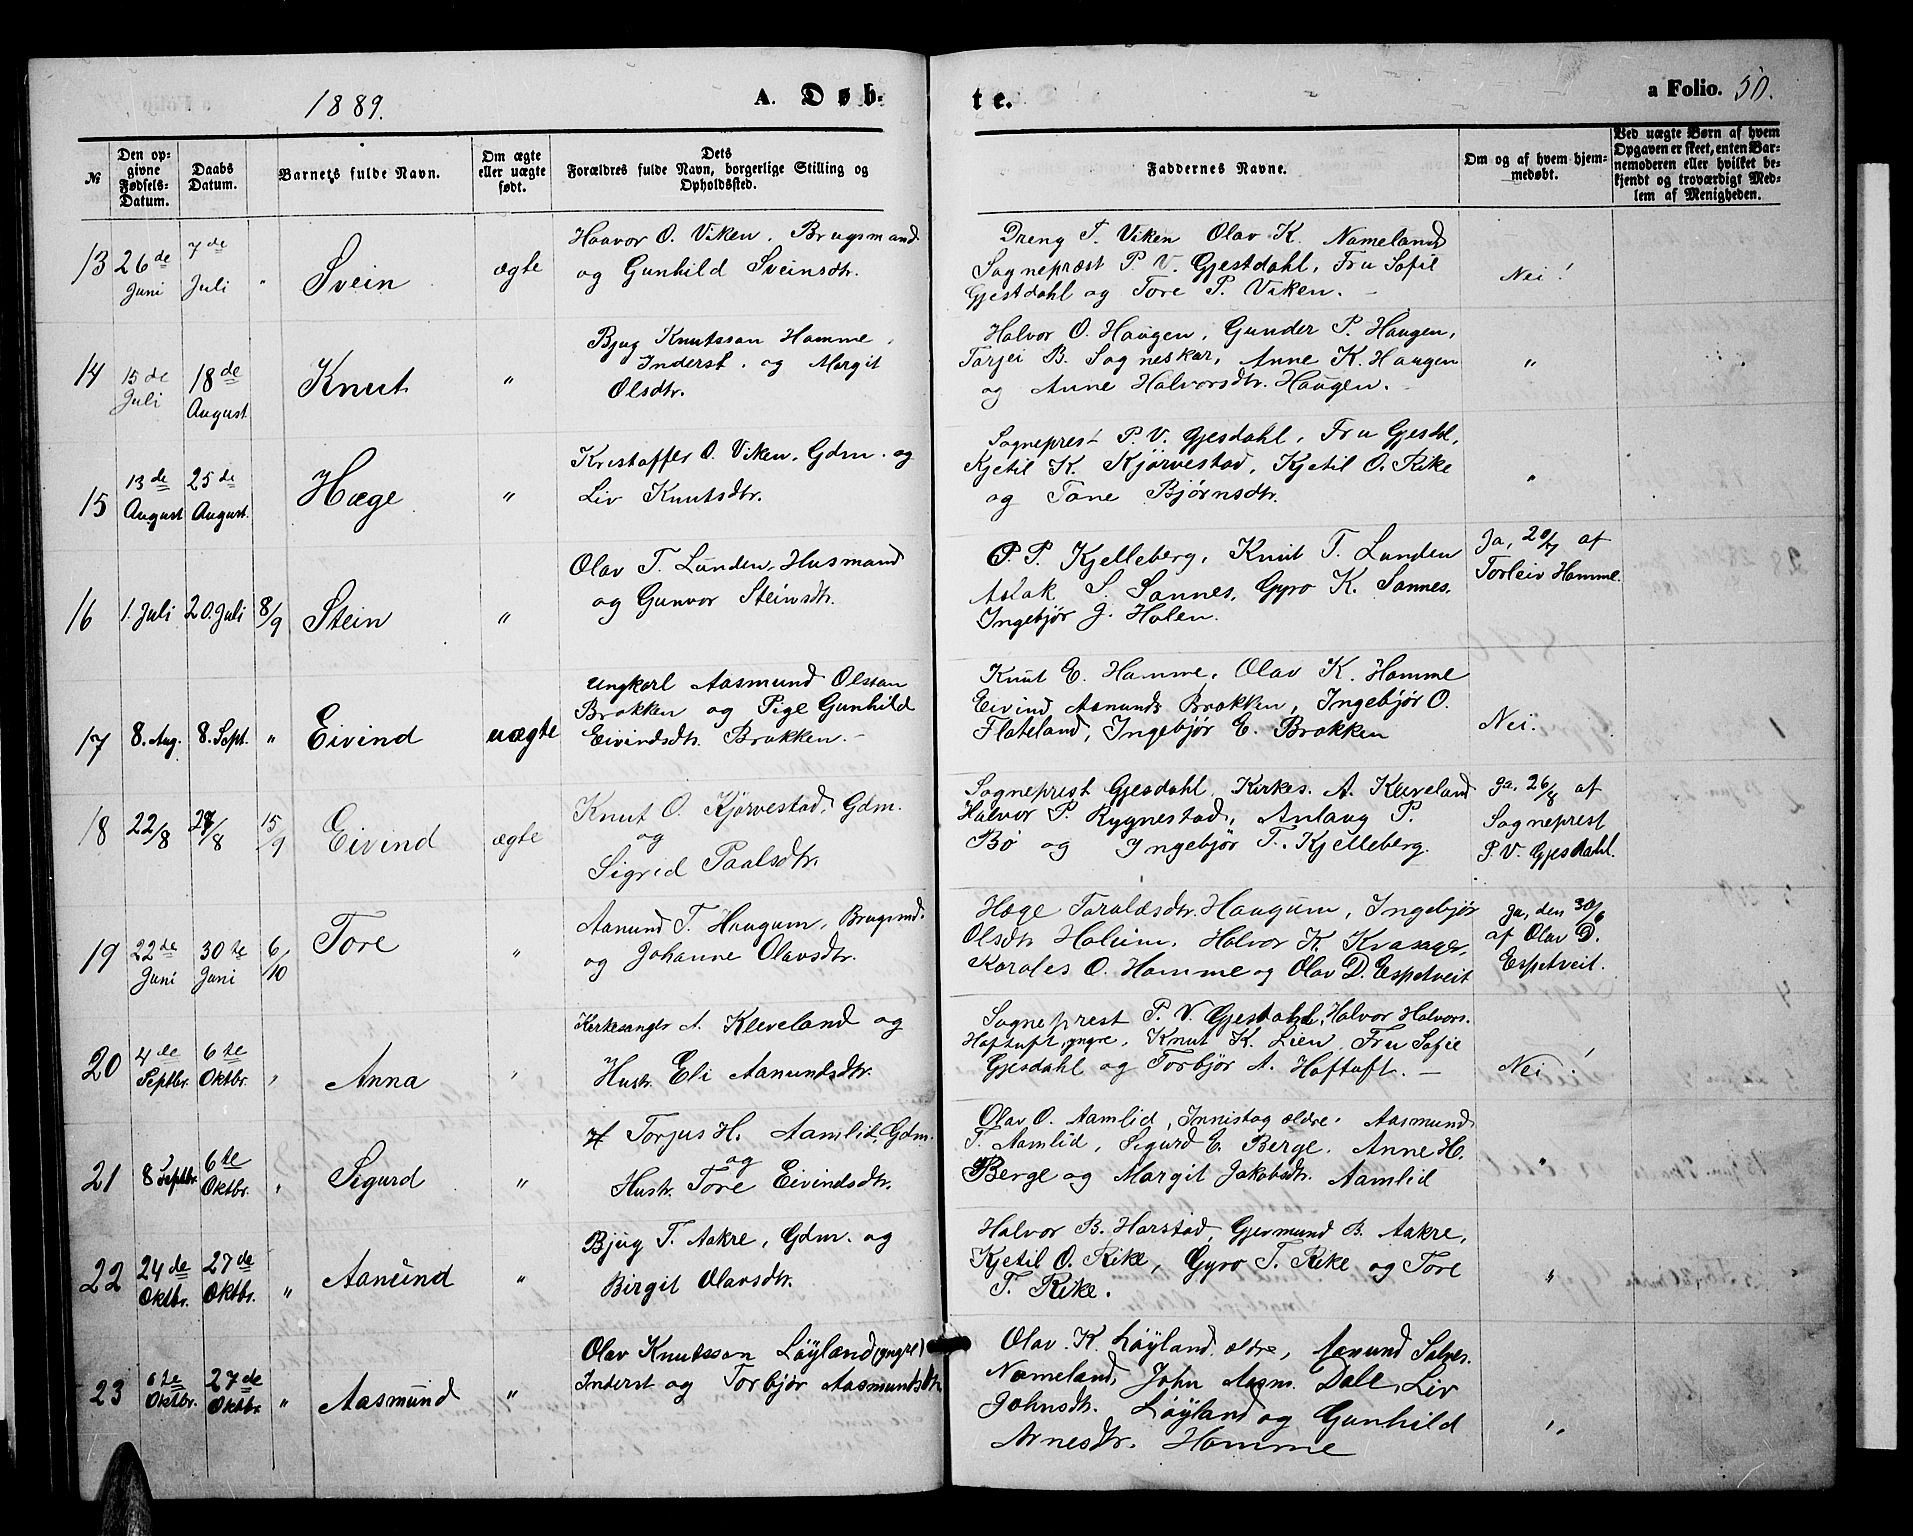 1889.
A. Døb-
te.
a Folio. 50.
№
Den op-
givne
Fødsels-
Datum.
Daabs
Datum.
Barnets fulde Navn.
Om ægte
eller uægte
født.
Dets
Forældres fulde Navn, borgerlige Stilling og
Opholdssted.
Faddernes Navne.
Om og af hvem hjem-
medøbt.
Ved uægte Børn af hvem
Opgaven er skeet, enten Bar-
nemoderen eller hvilket be-
kjendt og troværdigt Med-
lem af Menigheden.
13 26de Juni 7de Juli " Svein ægte
Haavor O. Viken, Brugsmand
og Gunhild Sveinsdtr.
Dreng T. Viken Olav K. Nomeland
Sognepræst P. V. Gjestdahl, Fru Sofie
Gjestdahl og Tore P. Viken. –
Nei!
14 15de Juli 18de August Knut "
Bjug Knutsson Homme,
Inderst. og Margit
Olsdtr.
Halvor O. Haugen, Gunder P. Haugen,
Tarjei B. Sagneskar, Anne K. Haugen
og Anne Halvorsdtr. Haugen. –
"
15 13de August 25de August Hæge "
Kristoffer O. Viken, Gdm. og
Liv Knutsdtr.
Sogneprest P. V. Gjesdahl, Fru Gjesdl,
Kjetil K. Kjørvestad, Kjetil O. Rike
og Tone Bjørnsdtr.
"
16 1. Juli 20. Juli 8/9 Stein "
Olav T. Lunden, Husmand
og Gunvor Steinsdtr.
P. P. Kjelleberg, Knut T. Lunden
Aslak S. Sannes, Gyro K. Sannes,
Ingebjør J. Holen.
Ja, 20/7 af
Torleiv Homme.
17 8. Aug. 8. Sept. " Eivind uægte
Ungkarl Aasmund Olsson
Brokken og Pige Gunhild
Eivindsdtr. Brokken. –
Knut E. Homme, Olav K. Homme
Eivind Asmunds Brokken, Ingebjør O.
Flateland, Ingebjør E. Brokken
Nei.
18 22/8 /8 15/9 Eivind ægte
Knut O. Kjørvestad, Gdm.
og
Sigrid Paalsdtr.
Sogneprest Gjesdahl, Kirkes. A. Kleveland
Halvor P. Rygnestad, Anlaug P.
Bø og Ingebjør T. Kjelleberg.
Ja, 26/8 af
Sogneprest
P. V. Gjesdahl.
19 22de Juni 30te Juni 6/10 Tore "
Aanund T. Haugum, Brugsmd.
og Johanne Olavsdtr.
Hæge Taraldsdtr. Haugum, Ingebjør
Olsdtr Holum, Halvor K.
O. Homme og Olav D. Espetveit
Ja, den 30/6
af Olav D.
Espetveit.
20 4de Septbr. 6te Oktbr. " Anna "
Kirkesanger A. Kleveland og
Hustr. Eli Aanundsdtr.
Sogneprest P. V. Gjesdahl, Halvor Halvors.
Hoftuft, yngre, Knut K. Lien, Fru Sofie
Gjesdahl og Torbjør A. Hoftuft. –
Nei!
21 8 Septbr. 6te Oktbr. " Sigurd "
Torjus H. Aamlid, Gdm.
og
Hustr. Tore Eivindsdtr.
Olav O. Aamlid, Innistog ældre, Aasmund
T. Aamlid, Sigurd E. Berge, Anne H.
Berge og Margit Jakobsdtr. Aamlid
"
22 24de Oktbr. 27de Oktbr. " Aanund "
Bjug T. Aakre, Gdm. og
Birgit Olavsdtr.
Halvor B. Harstad, Gjermund B. Aakre,
Kjetil O. Rike, Gyro T. Rike og Tore
T. Rike.
"
23 6te Oktbr. 27de Oktbr. " Aasmund "
Olav Knutsson Løyland (yngre)
Inderst og Torbjør Aasmundsdtr.
Olav K. Løyland ældre, Aanund Salves.
Nomeland, John Aasm. Dale, Liv
Johnsdtr. Løyland og Gunhild
Arnesdtr. Homme
"